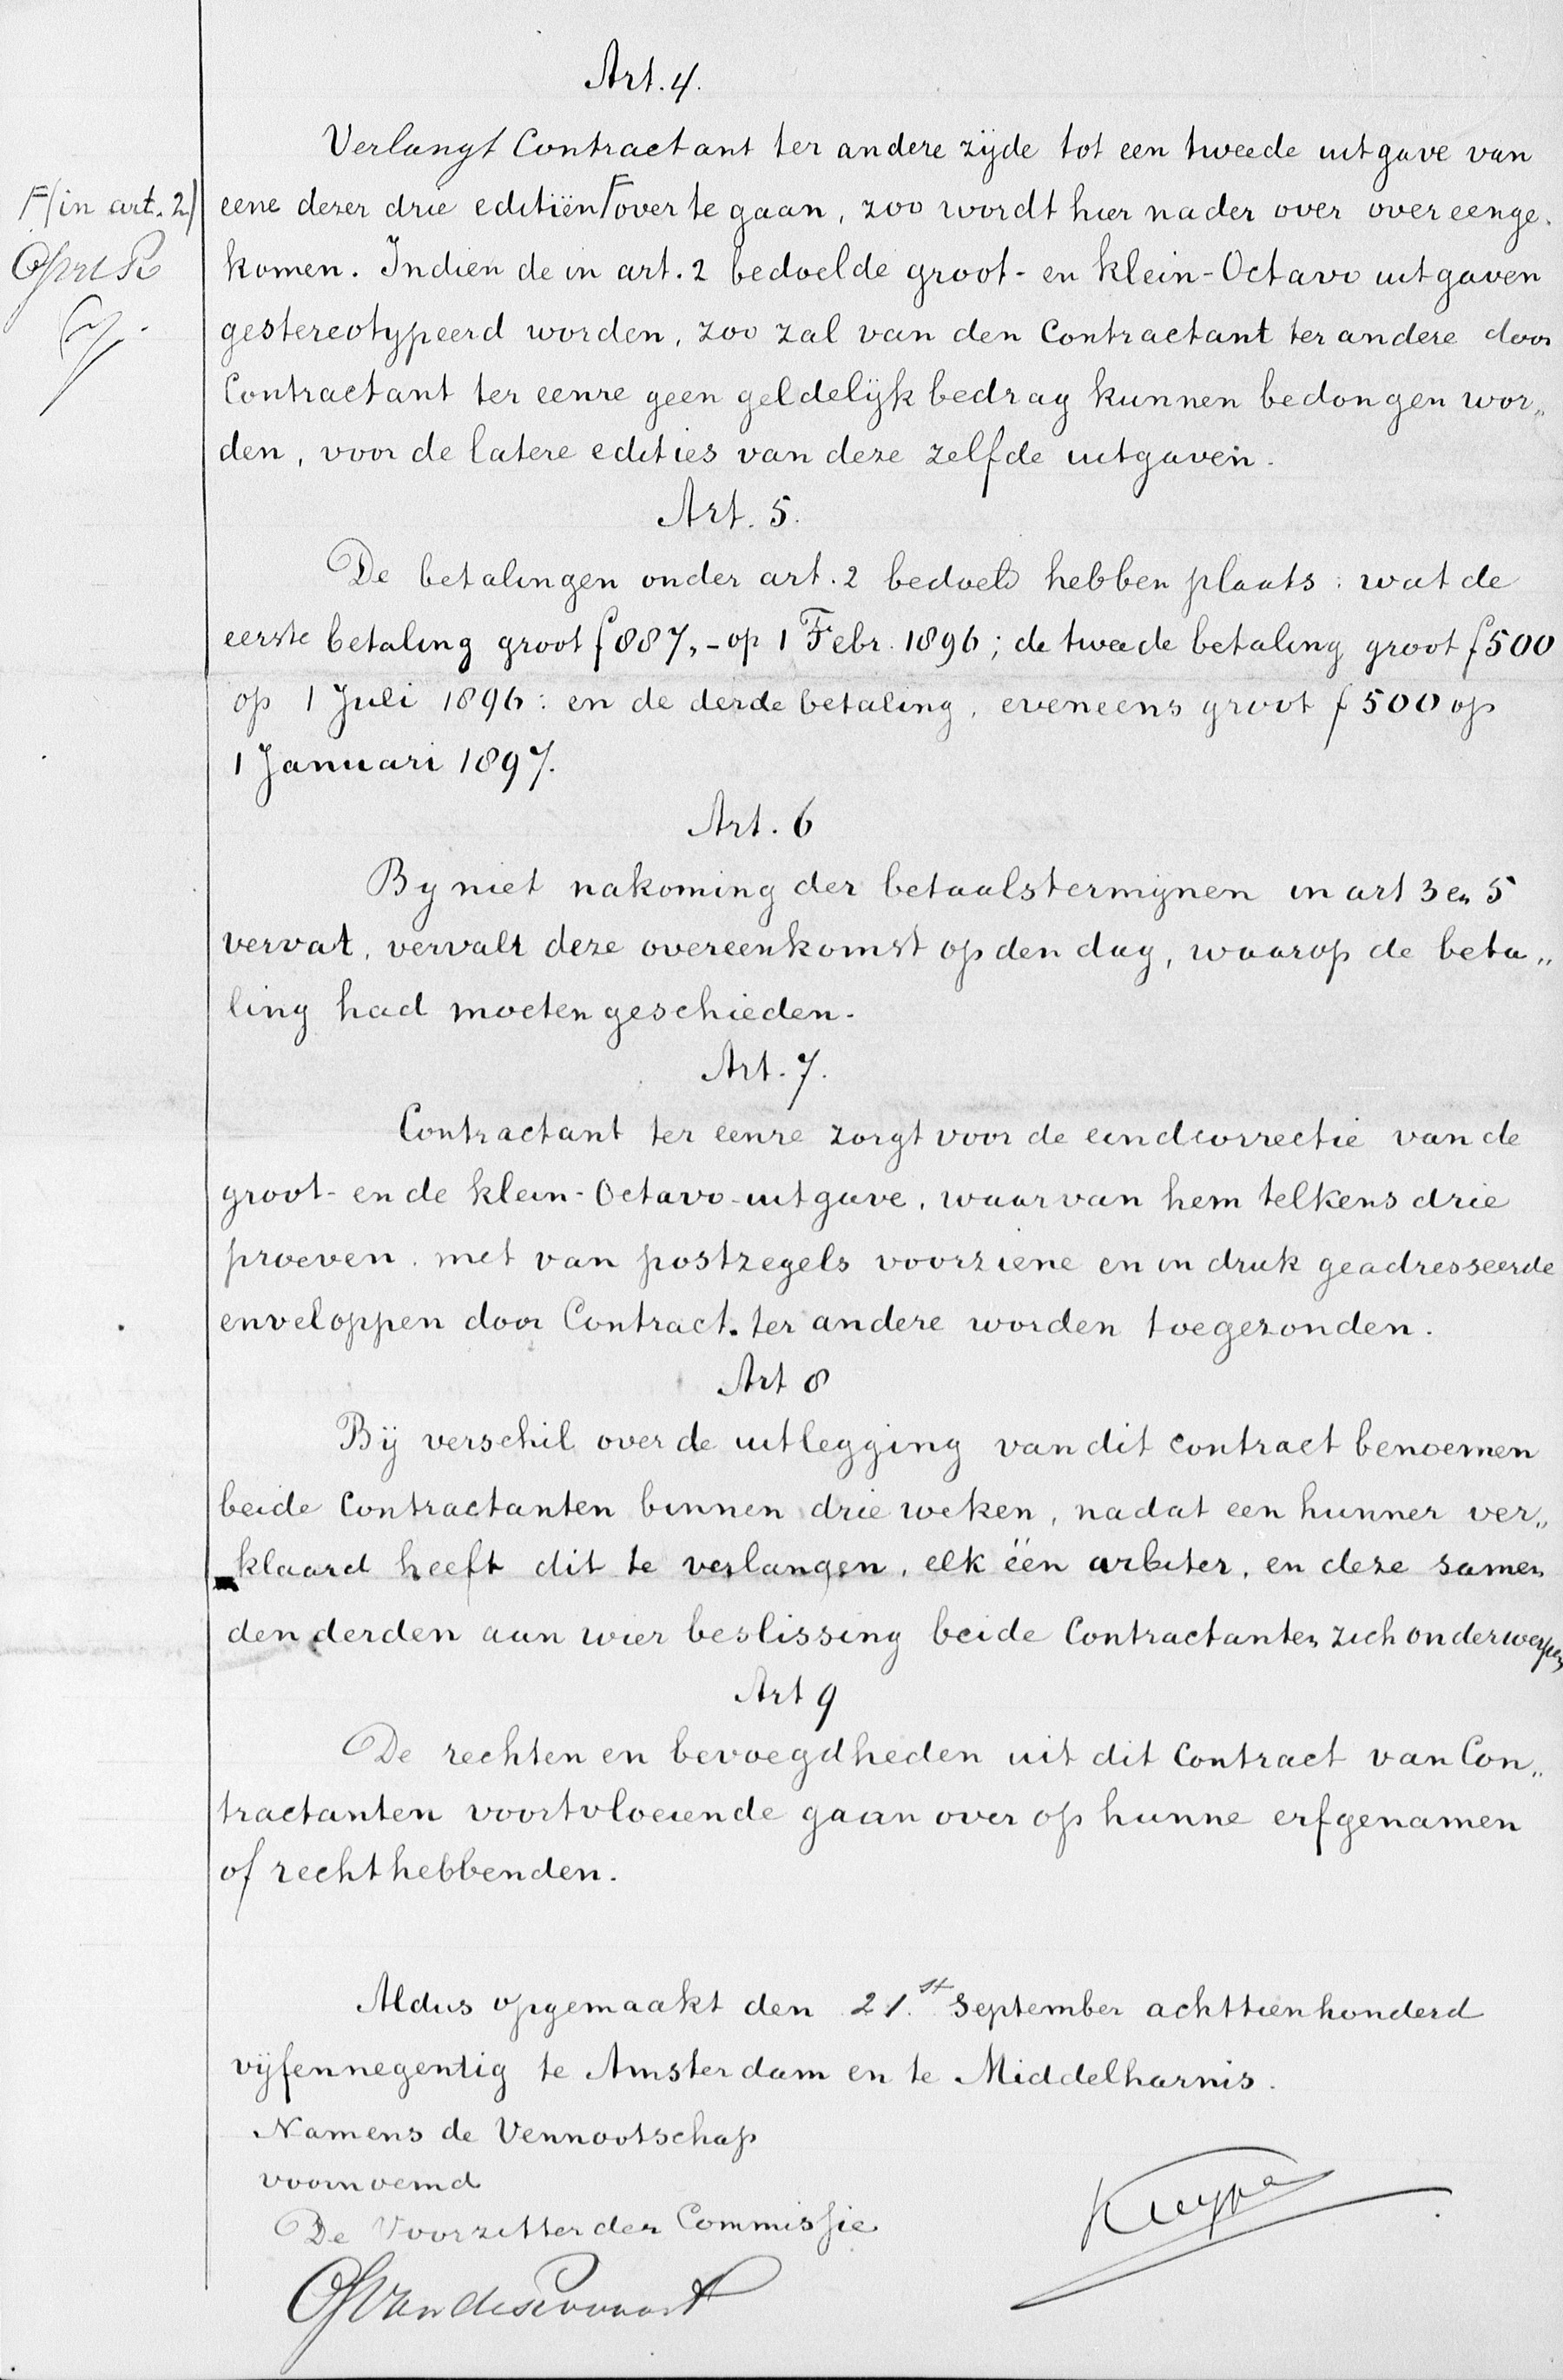 Art. 4.
Verlangt Contractant ter andere zijde tot een tweede uitgave van
F(in art. 2)
eene dezer drie editiën F over te gaan, zoo wordt hier nader over overeenge-
komen. Indien de in art. 2 bedoelde groot- en klein-Octavo uitgaven
gestereotypeerd worden, zoo zal van den Contractant ter andere door
Contractant ter eenre geen geldelijk bedrag kunnen bedongen wor„
den, voor de latere edities van deze zelfde uitgaven.
Art. 5.
De betalingen onder art. 2 bedoeld hebben plaats: wat de
eerste betaling groot f 887,- op 1 Febr. 1896; de tweede betaling groot f 500
op 1 Juli 1896: en de derde betaling, eveneens groot f 500 op
1 Januari 1897.
Art. 6
By niet nakoming der betaalstermynen in art 3 en 5
vervat, vervalt deze overeenkomst op den dag, waarop de beta„
ling had moeten geschieden.
Art. 7.
Contractant ter eenre zorgt voor de eindcorrectie van de
groot- en de klein-Octavo-uitgave, waarvan hem telkens drie
proeven, met van postzegels voorziene en in druk geadresseerde
enveloppen door Contract. ter andere worden toegezonden.
Art 8
Bij verschil over de uitlegging van dit contract benoemen
beide Contractanten binnen drie weken, nadat een hunner ver„
klaard heeft dit te verlangen, elk één arbiter, en deze samen
den derden aan wier beslissing beide Contractanten zich onderwerpen
Art 9
De rechten en bevoegdheden uit dit Contract van Con„
tractanten voortvloeiende gaan over op hunne erfgenamen
of rechthebbenden.
Aldus opgemaakt den 21.st September achttienhonderd
vijfennegentig te Amsterdam en te Middelharnis.
Namens de Vennootschap
voornoemd
De Voorzitter der Commissie
Kuyper